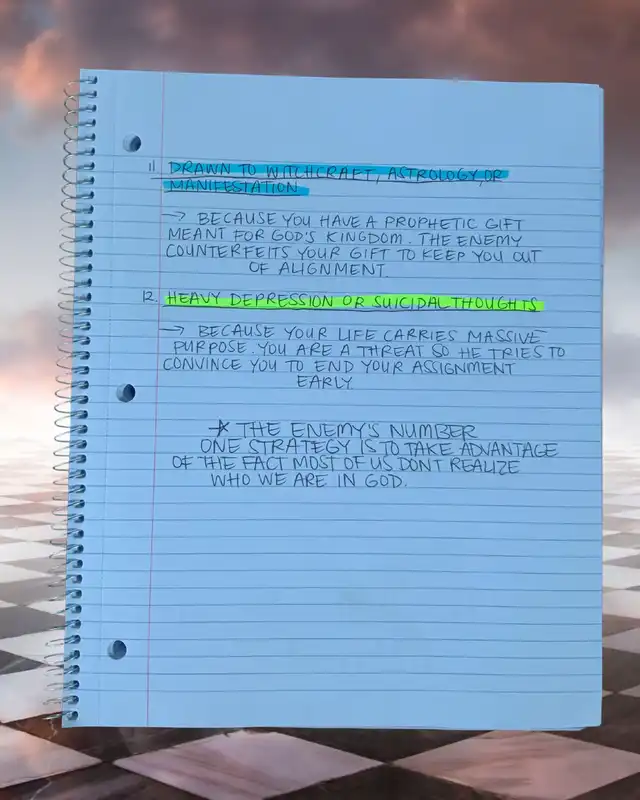 11. DRAWN TO WITCHCRAFT, ASTROLOGY, OR
MANIFESTATION
→ BECAUSE YOU HAVE A PROPHETIC GIFT
MEANT FOR GOD'S KINGDOM. THE ENEMY
COUNTERFEITS YOUR GIFT TO KEEP YOU OUT
OF ALIGNMENT.
12. HEAVY DEPRESSION OR SUICIDAL THOUGHTS
→ BECAUSE YOUR LIFE CARRIES MASSIVE
PURPOSE. YOU ARE A THREAT SO HE TRIES TO
CONVINCE YOU TO END YOUR ASSIGNMENT
EARLY
* THE ENEMY'S NUMBER
ONE STRATEGY IS TO TAKE ADVANTAGE
OF THE FACT MOST OF US DONT REALIZE
WHO WE ARE IN GOD.